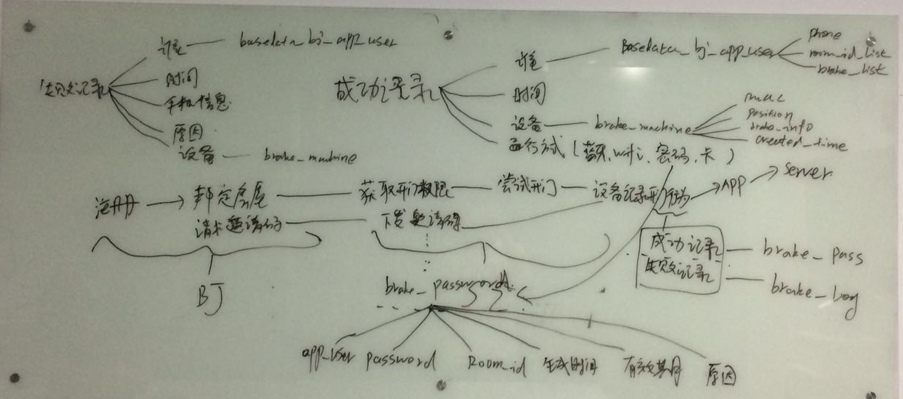 失败记录
谁 basedata_bj_app_user
时间
手机信息
原因
设备 brake_machine
成功记录
谁 Basedata_bj_app_user
phone
room_id_list
brake_list
时间
设备 brake_machine
mac
position
brake_info
created_time
通行方式（蓝牙、wifi、密码、卡）
注册 绑定房屋 获取开门权限 尝试开门 设备记录开门行为 APP Server
请求邀请码 下发邀请码
成功记录 brake_pass
失败记录 brake_log
BJ
brake_password
app_user password Room_id 生成时间 有效期 原因